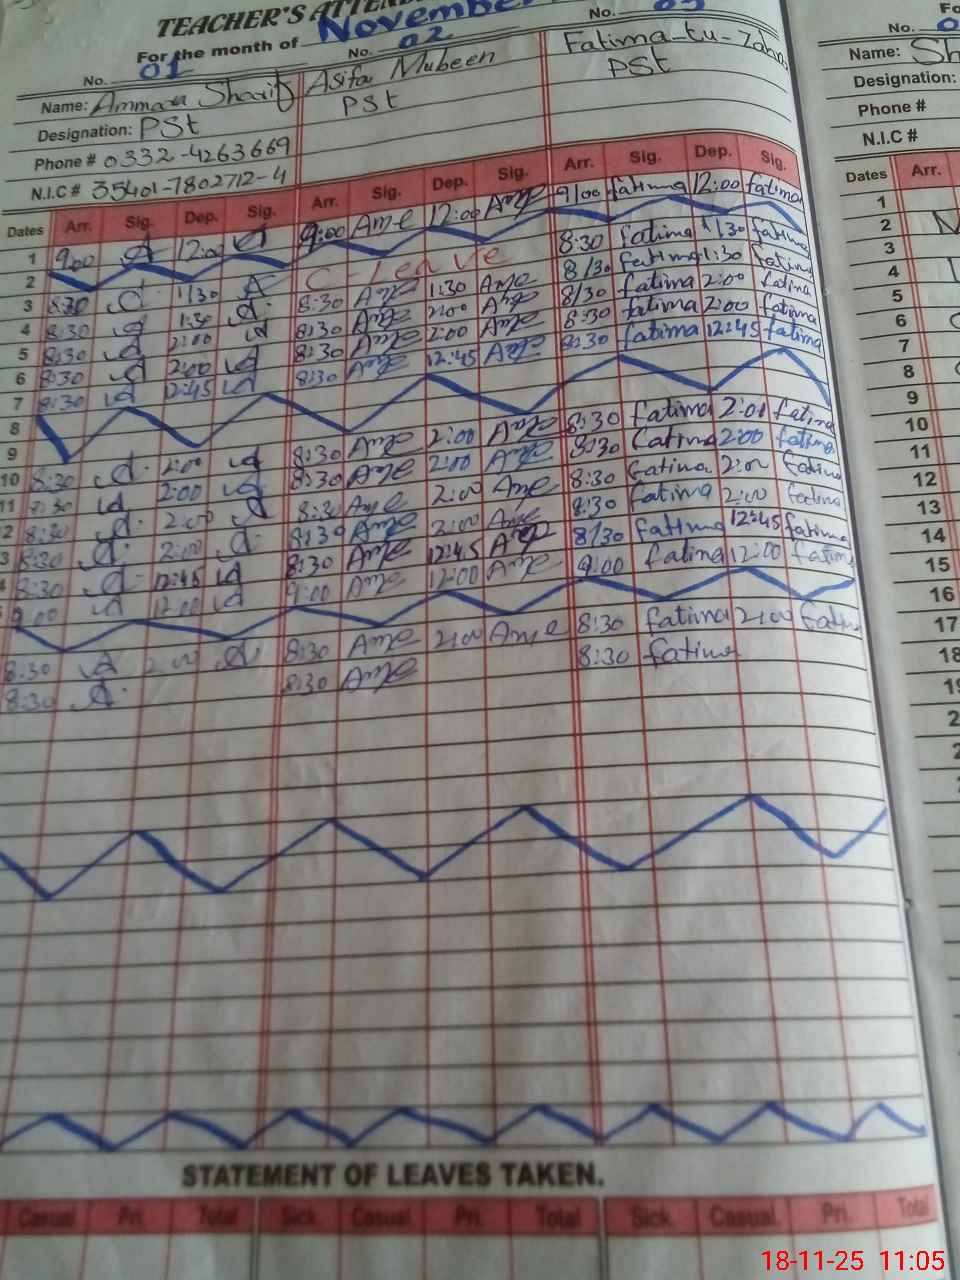 TEACHER'S ATTEND
For the month of November
No. 01 No. 02 No. 03
Name: Ammara Sharif Asifa Mubeen Fatima-tu-Zahra
Designation: PSt PSt PSt
Phone # 0332-4263669
N.I.C # 35401-7802712-4
Dates Arr. Sig. Dep. Sig. Arr. Sig. Dep. Sig. Arr. Sig. Dep. Sig.
1 9:00 12:00 9:00 Ame 12:00 Ame 9/00 fatima 12:00 fatima
2
3 8:30 1:30 C-Leave 8:30 fatima 1:30 fatima
4 8:30 1:30 8:30 Ame 1:30 Ame 8/30 fatima 1:30 fatima
5 8:30 2:00 8:30 Ame 2:00 Ame 8/30 fatima 2:00 fatima
6 8:30 2:00 8:30 Ame 2:00 Ame 8:30 fatima 2:00 fatima
7 8:30 12:45 8:30 Ame 12:45 Ame 8:30 fatima 12:45 fatima
8
9
10 8:30 2:00 8:30 Ame 2:00 Ame 8:30 fatima 2:00 fatima
11 8:30 2:00 8:30 Ame 2:00 Ame 8:30 fatima 2:00 fatima
2 8:30 2:00 8:30 Ame 2:00 Ame 8:30 fatima 2:00 fatima
3 8:30 2:00 8:30 Ame 2:00 Ame 8:30 fatima 2:00 fatima
8:30 12:45 8:30 Ame 12:45 Ame 8/30 fatima 12:45 fatima
9:00 12:00 9:00 Ame 12:00 Ame 9:00 fatima 12:00 fatima
8:30 2:00 8:30 Ame 2:00 Ame 8:30 fatima 2:00 fatima
8:30 8:30 Ame 8:30 fatima
STATEMENT OF LEAVES TAKEN.
Casual. Pri. Total Sick. Casual. Pri. Total Sick. Casual. Pri. Total
Fo
No. 0
Name: Sh
Designation:
Phone #
N.I.C #
Dates Arr.
1
2
3
4
5
6
7
8
9
10
11
12
13
14
15
16
17
18
18-11-25 11:05